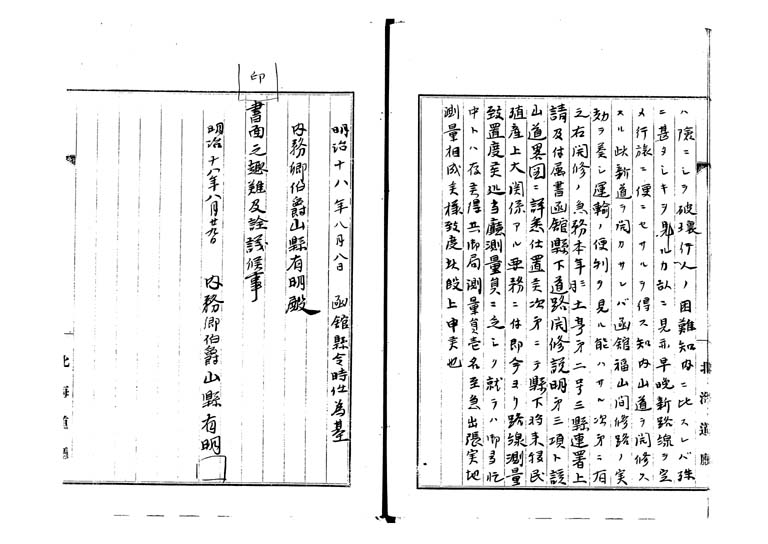 ハ隘ニシテ破壊行人ノ困難知内ニ比スレバ殊
ニ甚タシキヲ見ル力故ニ見示早晩新路線ヲ定
メ行旅ニ便ニセサルヲ得ス知内山道ヲ開修ス
スル此新道ヲ開カサレバ函館福山間修路ノ実
効ヲ奏シ運輸ノ便利ヲ見ル能ハサル次第ニ有
之右開修ノ急務本年 土 第二号三縣連署上
請及付属書函館縣下道路開修説明第三項ト該
山道畧図ニ詳悉仕置候次第ニテ縣下将来移民
殖産上大関係アル要務ニ付即今ヨリ路線測量
致置度候処当廳測量員ニ乏シク就テハ御多忙
中トハ存候得共御局測量員壱名至急出張実地
測量相成候様致度此段上申候也
北海道廳
明治十八年八月八日 函館縣令時任為基
内務卿伯爵山縣有朋殿
印
書面之趣難及詮議候事
明治十八年八月廿 日 内務卿伯爵山縣有朋
北海道廳